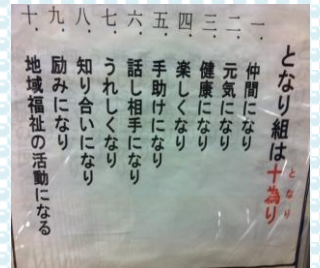 となり組は十為り
となり
一．仲間になり
二．元気になり
三．健康になり
四．楽しくなり
五．手助けになり
六．話し相手になり
七．うれしくなり
八．知り合いになり
九．励みになり
十．地域福祉の活動になる